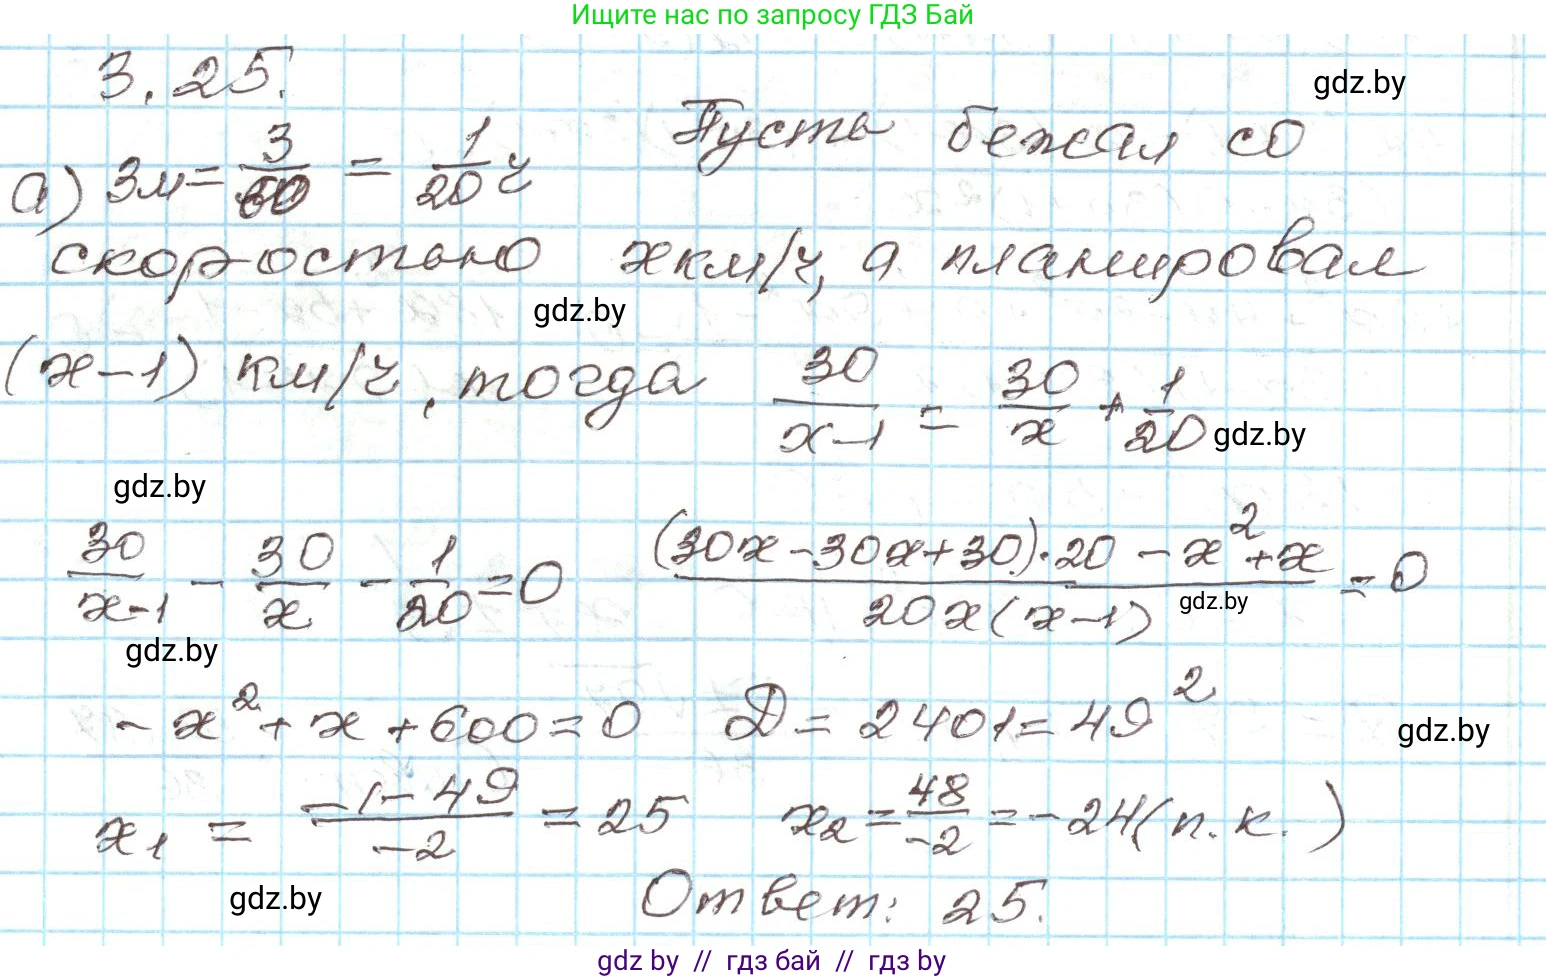 Ищите нас по запросу ГДЗ Бай
3.25.
gdz.by
а) 3м = 3/60 = 1/20 ч Пусть бежал со
скоростью x км/ч, а планировал
gdz.by
(x-1) км/ч, тогда 30/(x-1) = 30/x + 1/20 gdz.by
gdz.by
30/(x-1) - 30/x - 1/20 = 0 ((30x-30x+30)·20 - x²+x)/(20x(x-1)) = 0
gdz.by
gdz.by
-x²+x+600=0 Д = 2401 = 49²
gdz.by
x₁ = (-1-49)/(-2) = 25 x₂ = 48/(-2) = -24 (п.к.)
gdz.by
Ответ: 25.
gdz by // гдз бай // гдз by